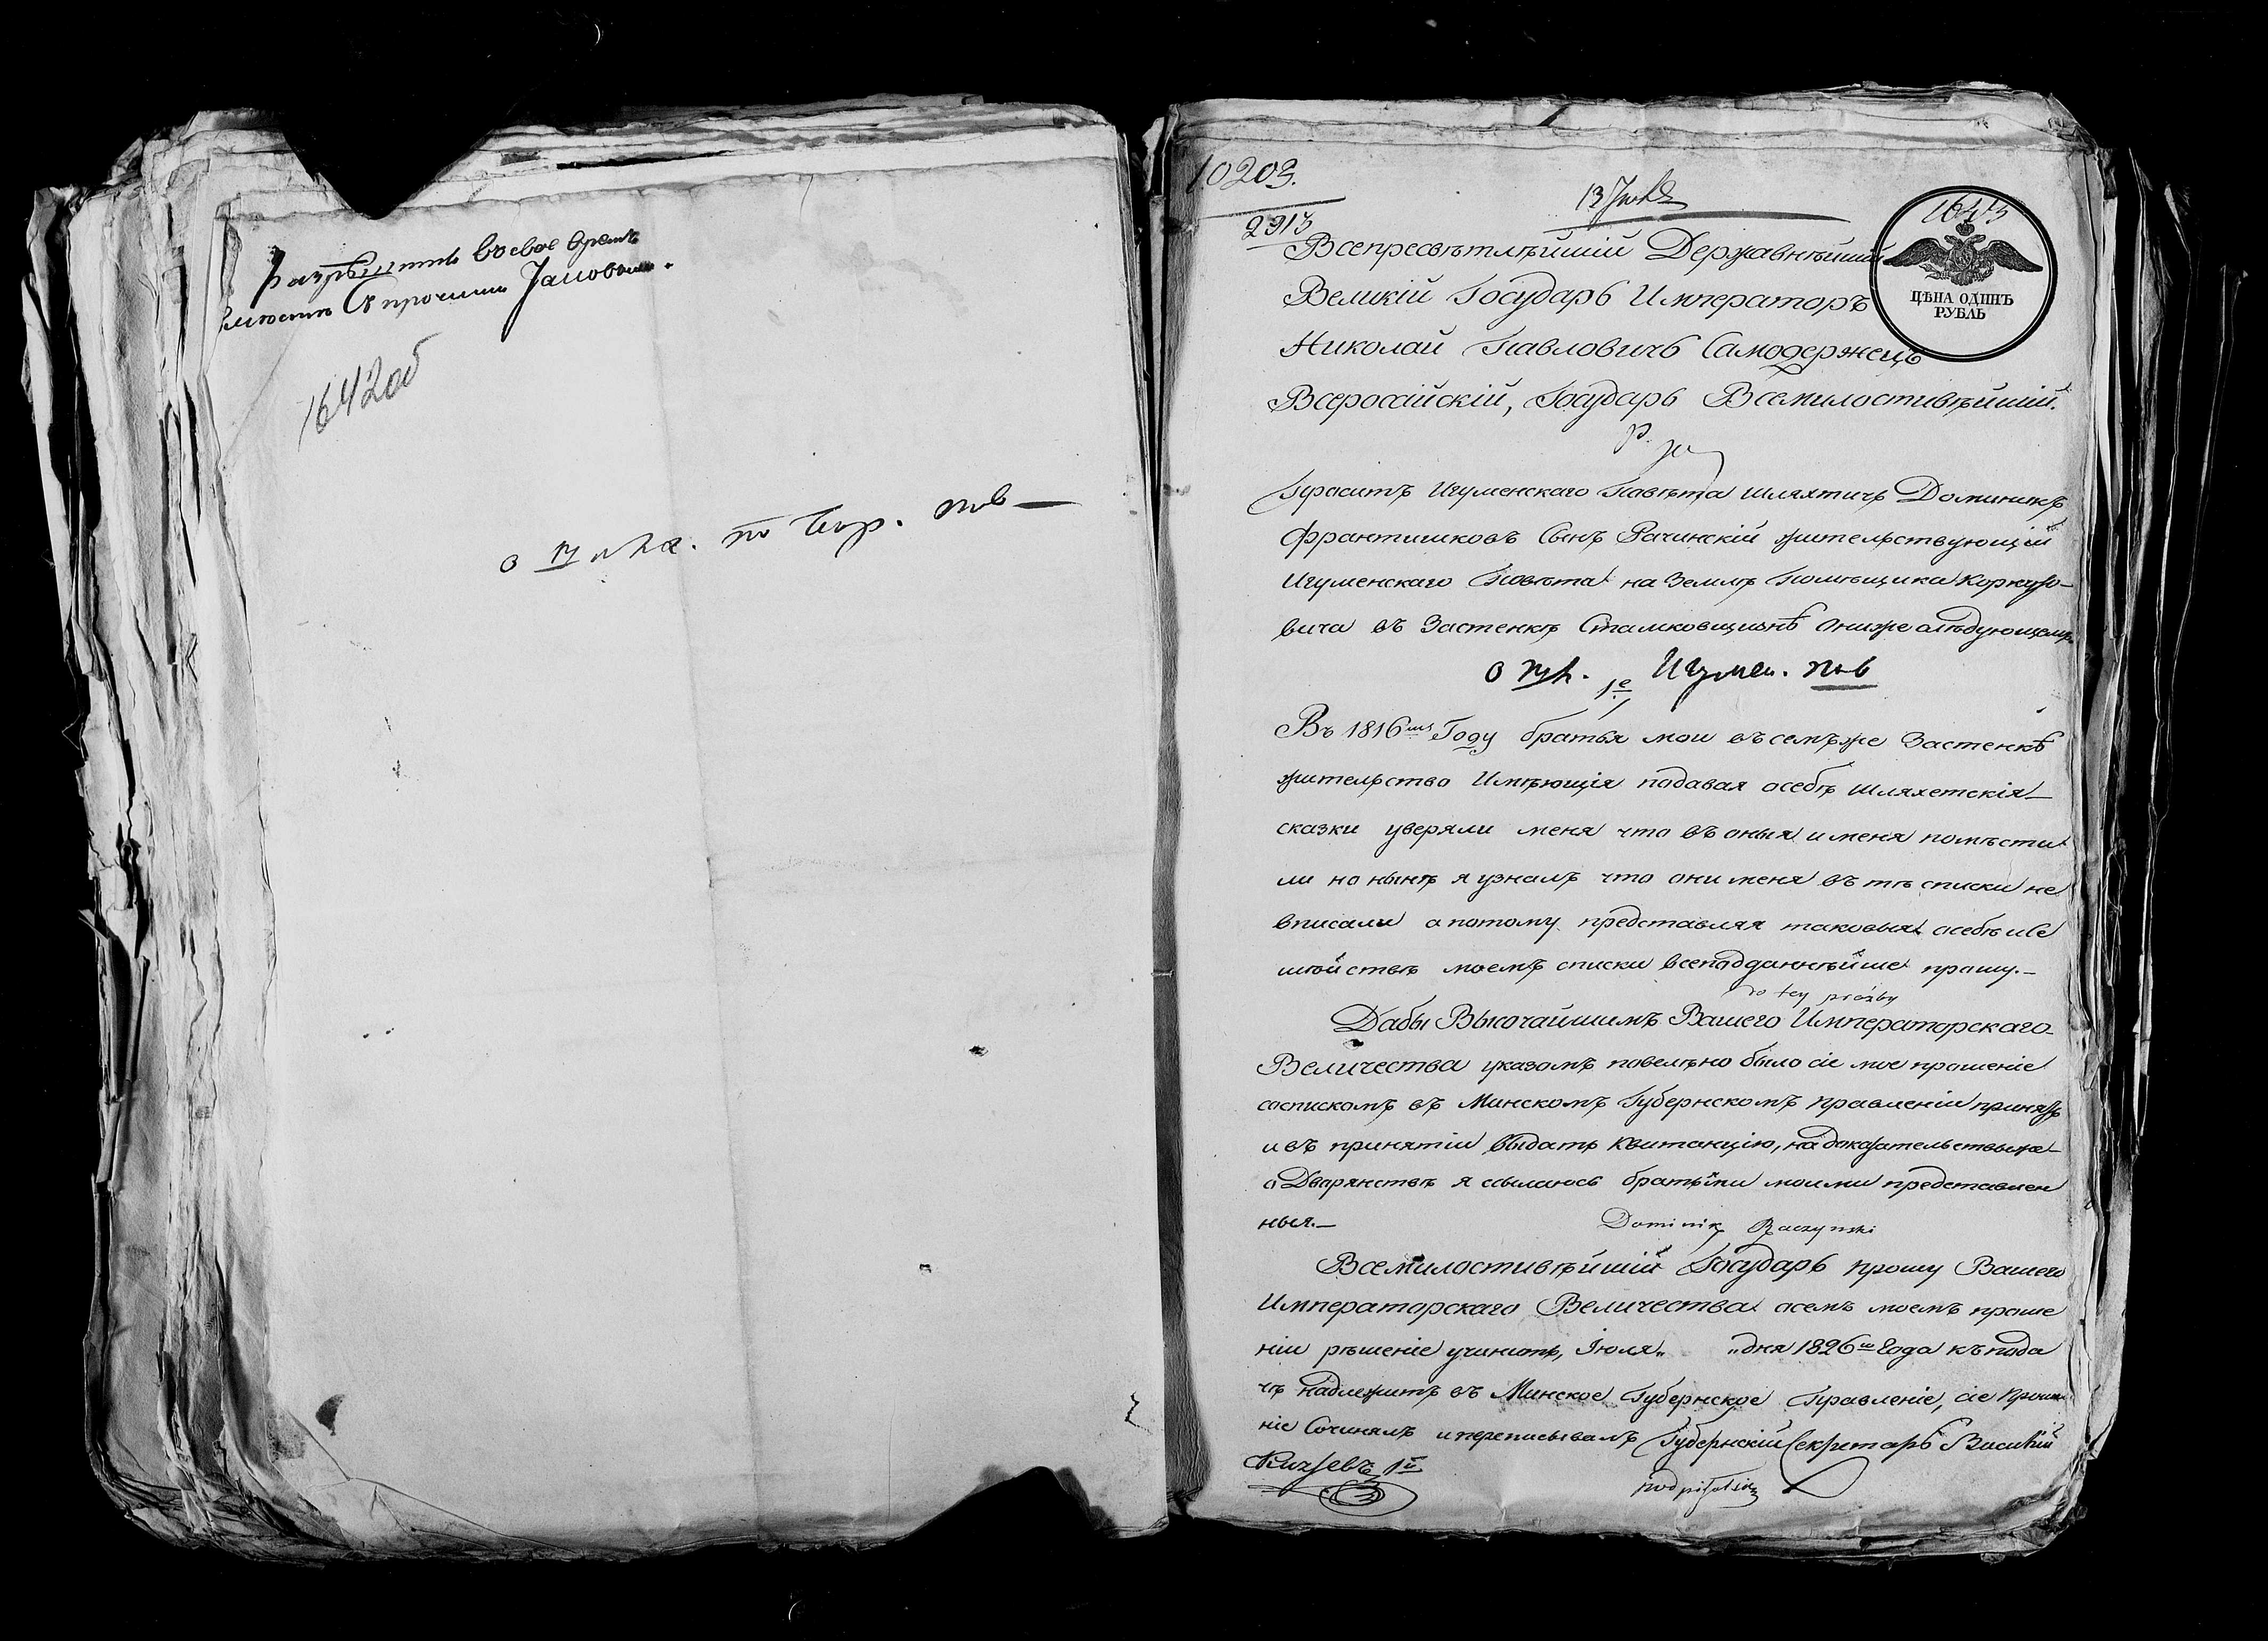 Разрѣшить въ свое время
вмѣстѣ съ прочими
1642об
10203.
2913
13
1643
ЦѢНА ОДИНЪ
РУБЛЬ
Всепресвѣтлѣйшій Державнѣйшій
Великій Государь Императоръ
Николай Павловичь Самодержецъ
Всеросійскій, Государь Всемилостивѣйшій.
Проситъ Игуменскаго Повѣта шляхтичъ Доминикъ
Франтишковъ Сынъ Рачинскій жительствующій
Игуменскаго Повѣта на Землѣ Помѣщика Коркузо-
вича въ Застенкѣ Сталковщизнѣ о нижеслѣдующемъ
1е
Въ 1816мъ Году братья мои въ семъ же Застенкѣ
жительство Имѣющія подавая о себѣ шляхетскія
сказки уверяли меня что въ оныя и меня помѣсти
ли но нынѣ я узналъ что они меня въ тѣ списки не
вписали а потому представляя таковыя о себѣ и Се
мействѣ моемъ списки всеподданнѣйше прошу.—
do tey prozby
Дабы Высочайшимъ Вашего Императорскаго
Величества указомъ повелѣно было сіе мое прошеніе
соспискомъ въ Минскомъ Губернскомъ правленіи принять
и въ принятіи выдать квитанцію, на доказательствы же
о Дворянствѣ я ссылаюсь братьями моими представлен
ныя.—
Dominik Raczynski
Всемилостивѣйшій Государь прошу Вашего
Императорскаго Величества о семъ моемъ проше
ніи рѣшеніе учинить, Іюля „ „ дня 1826го Года къ пода
чѣ надлежитъ въ Минское Губернское Правленіе, сіе Проше
ніе Сочинялъ и переписывалъ Губернскій Секретарь Василій
1й
podpisał się